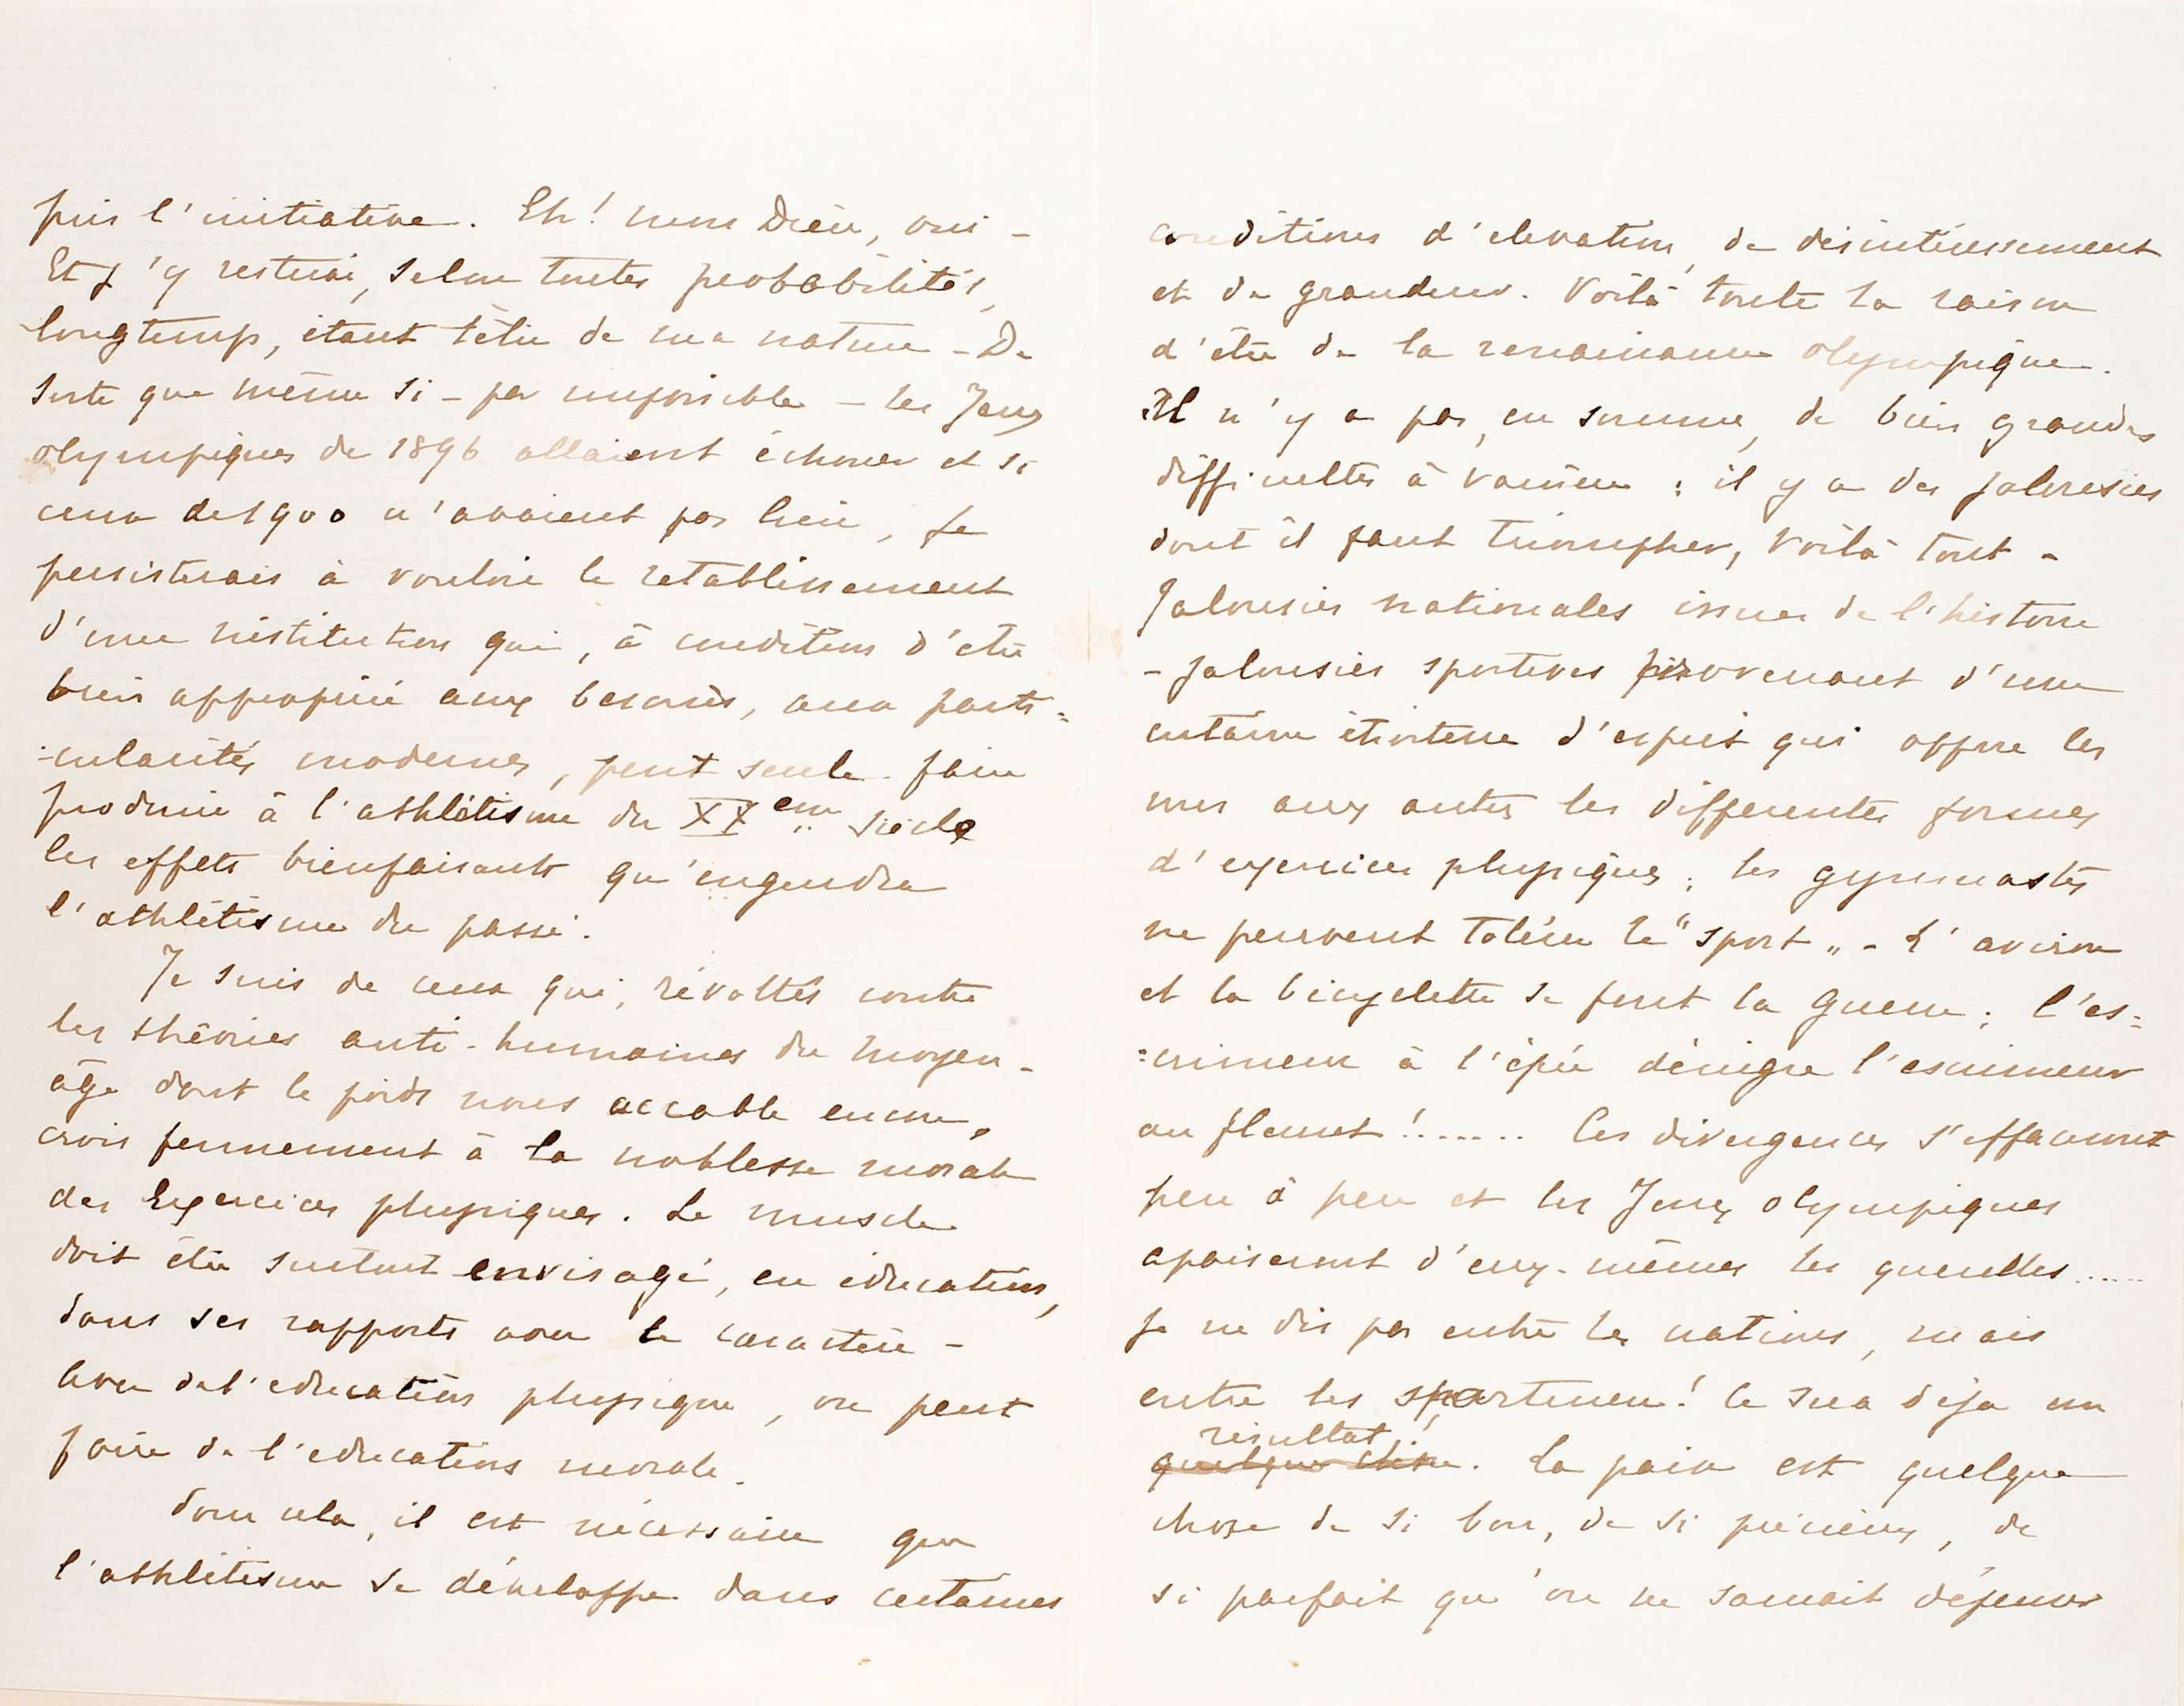 pris l'initiative. Eh! mon Dieu, oui -
Et j'y resterai, selon toutes probabilités,
longtemps, étant têtu de ma nature - De
sorte que même si - par impossible - les Jeux
olympiques de 1896 allaient échouer et si
ceux de 1900 n'avaient pas lieu, je
persisterais à vouloir le retablissement
d'une institution qui, à condition d'être
bien appropriée aux besoins, aux parti=
=cularités modernes, peut seule faire
produire à l'athlétisme du XXeme siècle
les effets bienfaisants qu'engendra
l'athlétisme du passé.
Je suis de ceux qui, révoltés contre
les théories anti-humaines du moyen-
âge dont le poids nous accable encore,
crois fermement à la noblesse morale
des Exercices physiques. Le muscle
doit être surtout envisagé, en éducation,
dans ses rapports avec le caractère -
Avec de l'education physique, on peut
faire de l'education morale.
Pour cela, il est nécessaire que
l'athlétisme se développe dans certaines
conditions d'elevation, de désintéressement
et de grandeur. Voilà toute la raison
d'être de la renaissance olympique.
Il n'y a pas, en somme, de bien grandes
difficultés à vaincre : il y a des jalousies
dont il faut triompher, voilà tout -
Jalousies nationales issues de l'histoire
- jalousies sportives provenant d'une
certaine étroitesse d'esprit qui oppose les
uns aux autres les differentes formes
d'exercices physiques ; les gymnastes
ne peuvent tolérer le "sport" - L'aviron
et la bicyclette se font la guerre ; l'es=
=crimeur à l'épée dénigre l'escrimeur
au fleuret !....... Ces divergences s'effaceront
peu à peu et les Jeux olympiques
apaiseront d'eux-mêmes les querelles.....
je ne dis pas entre les nations, mais
entre les sportsmen! Ce sera déja un
résultat!
quelque chose. La paix est quelque
chose de si bon, de si précieux, de
si parfait qu'on ne saurait dépenser